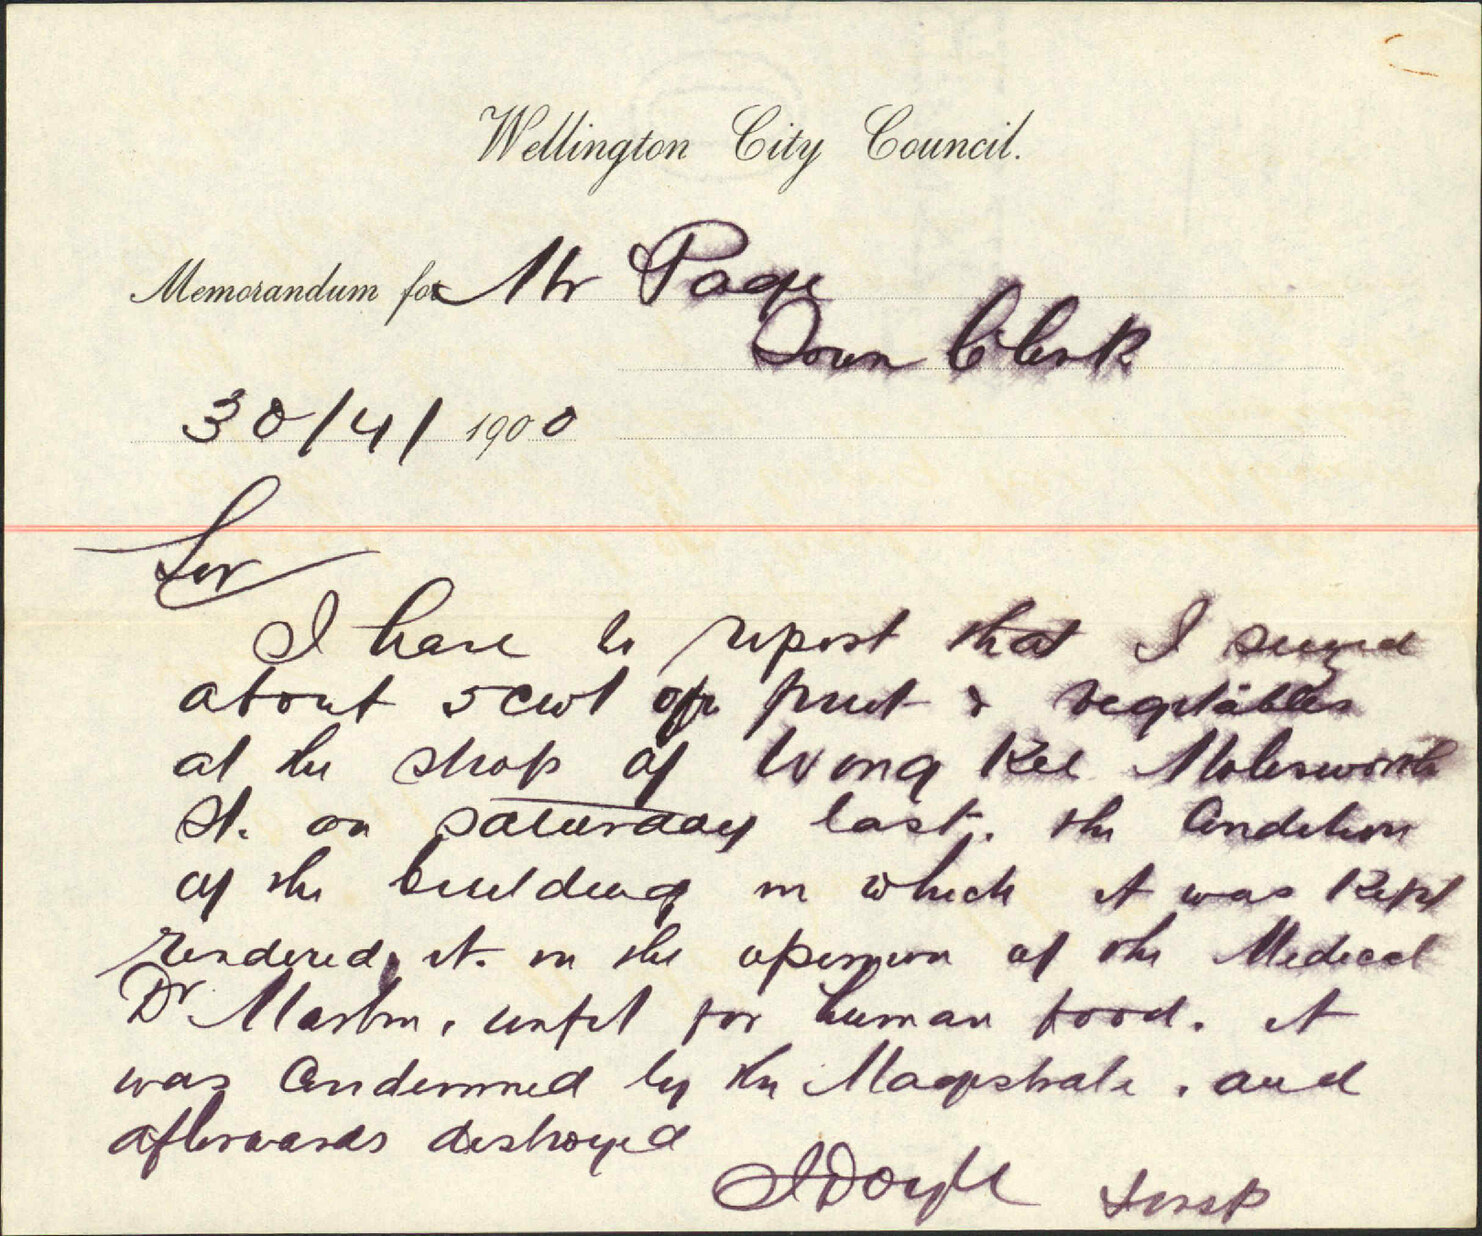 Wellington City Council.
Memorandum for Mr Page
Town Clerk
30/4/1900
Sir
I have to report that I seized
about 5 cwt of fruit & vegetables
at the shop of Wong Kee Molesworth
St. on Saturday last. the Condition
of the building in which it was Kept
rendered, it. in the opinion of the Medical
Dr Martin, unfit for human food. it
was Condemned by the Magistrate, and
afterwards destroyed
J Doyle Insp